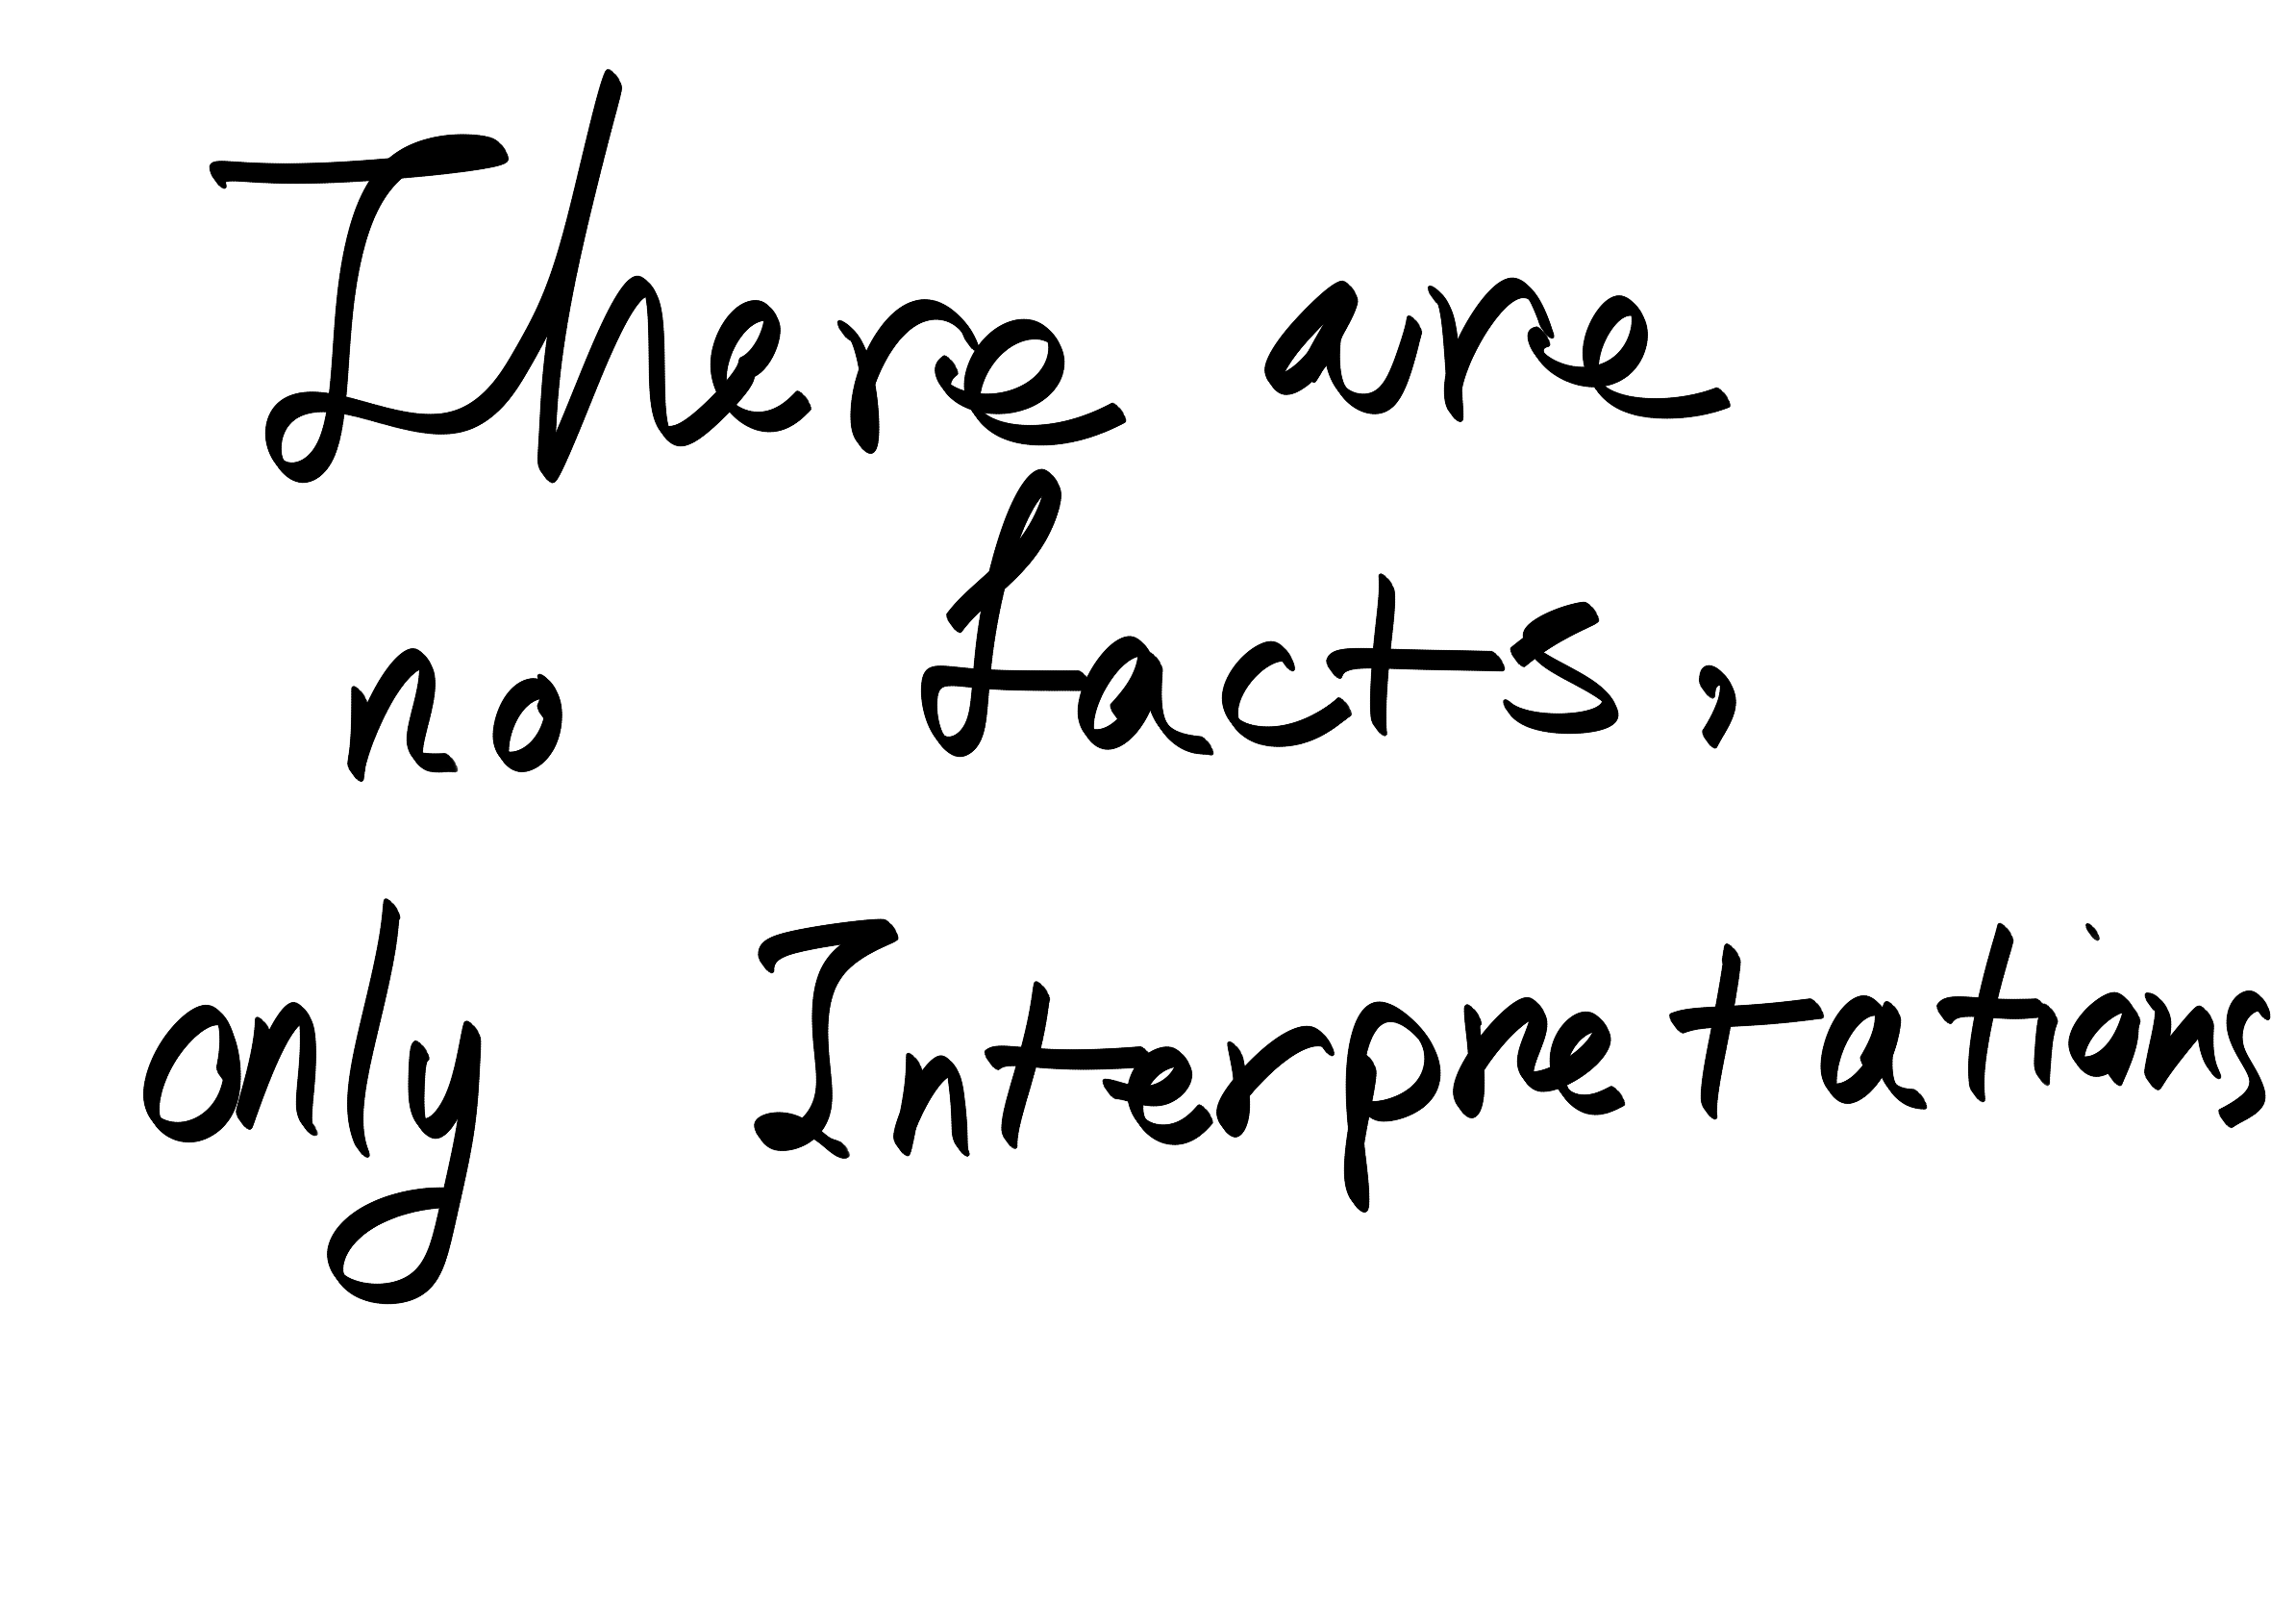 There are
no facts,
only Interpretations